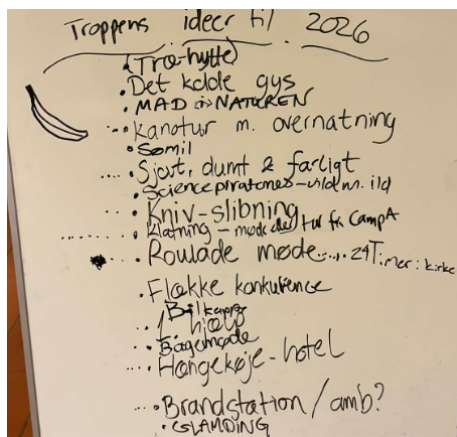 Troppens ideer til 2026
(Træ-hytte)
Det kolde gys
MAD i NATUREN
Kanotur m. overnatning
Sømil
Sjovt, dumt & farligt
Sciencepiraterne - vild m. ild
Kniv-slibning
Klatring - møde eller tur fx Camp A
Roulade møde 24 Timer: kirke
Flække konkurence
hjælp
Bagemøde
Hængekøje-hotel
Brandstation / amb?
GLAMPING